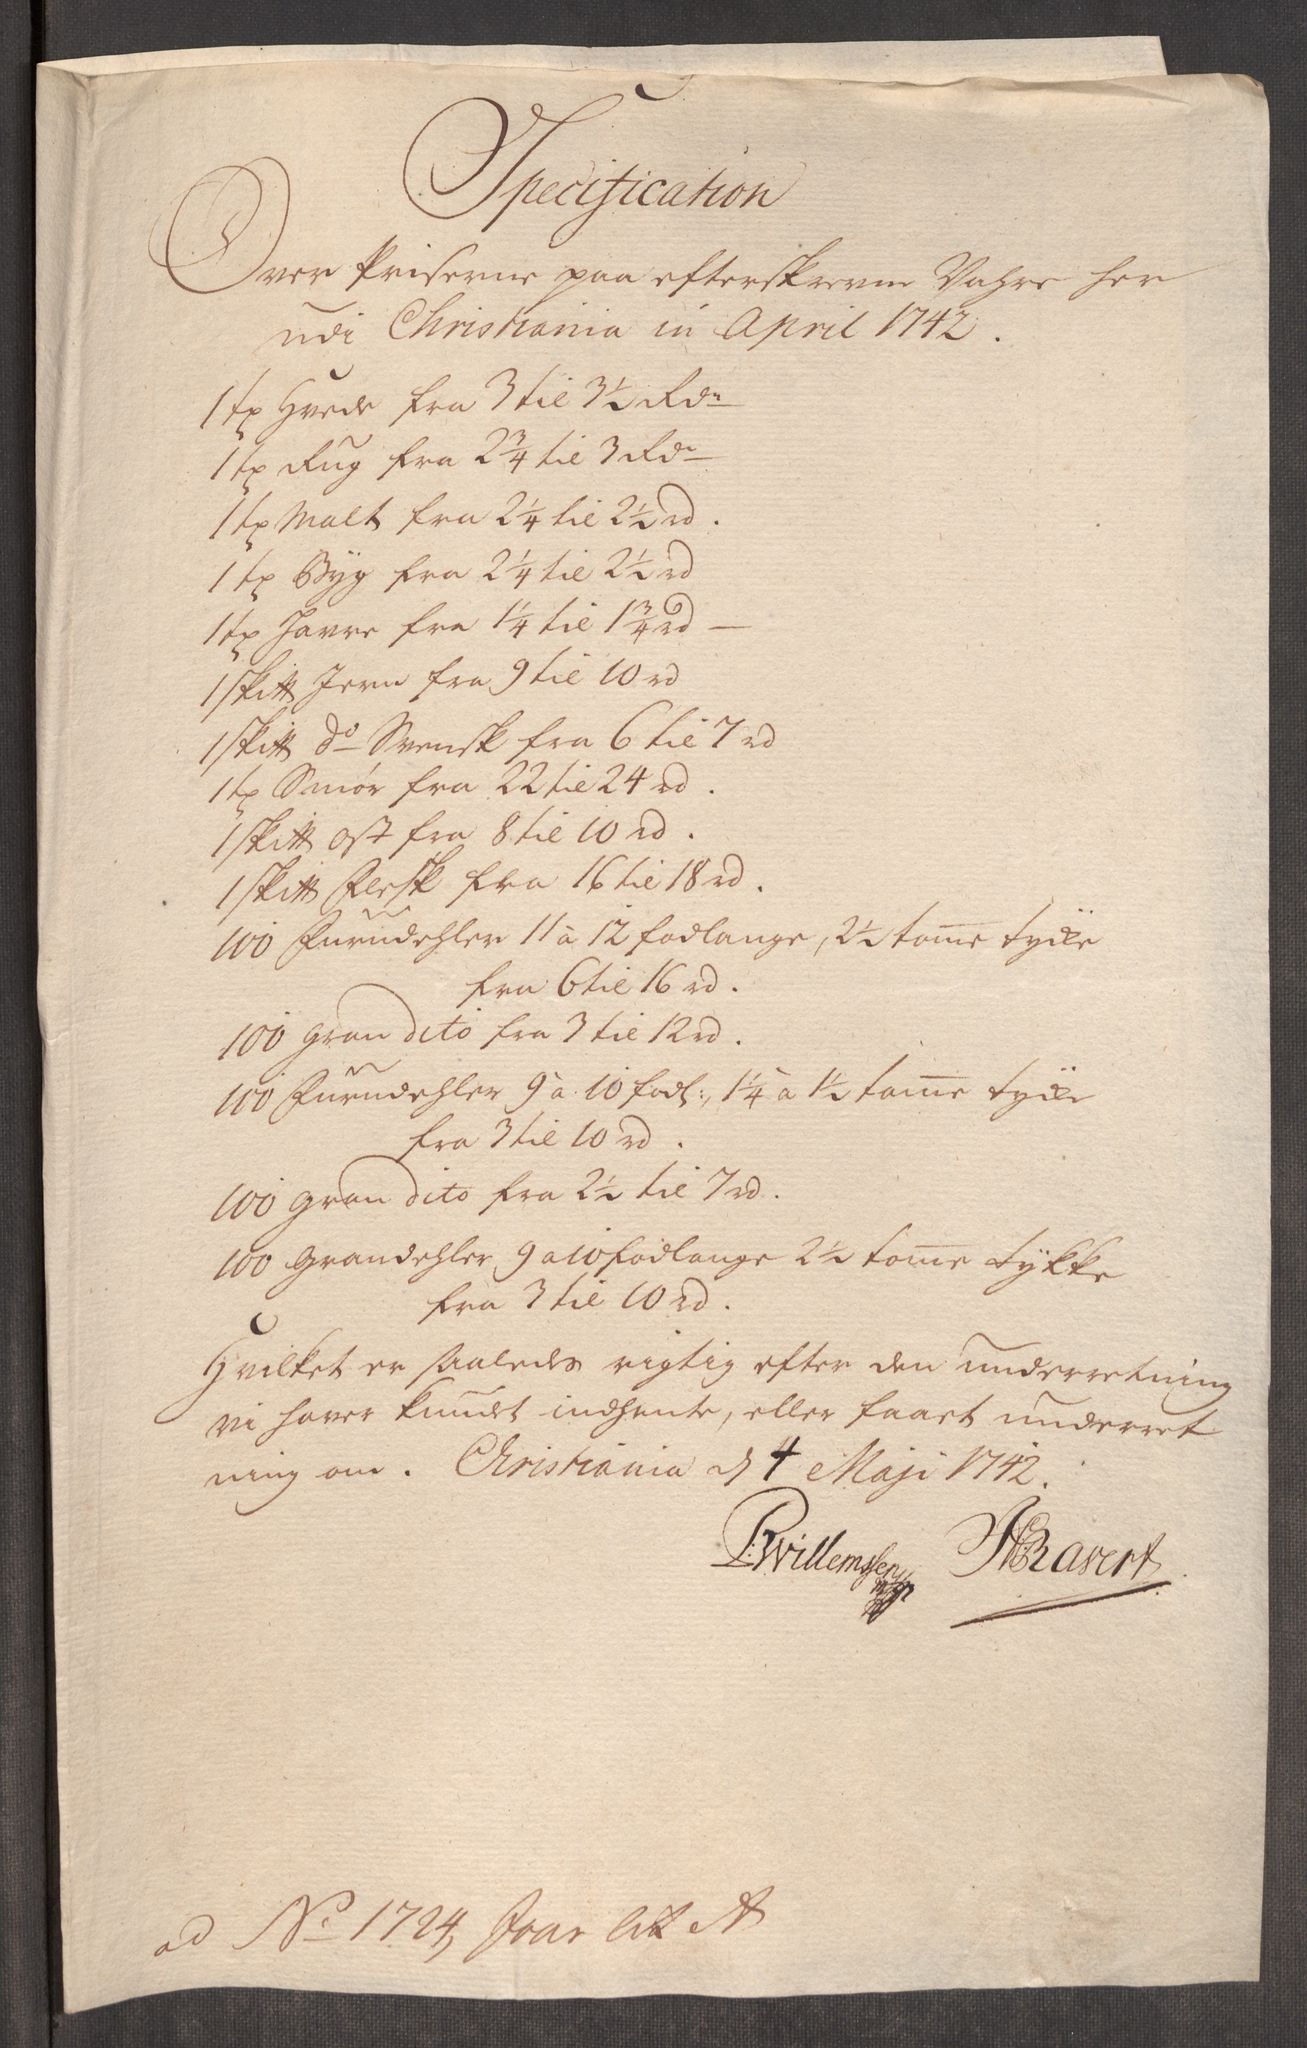 Specification
Over Priserne paa efterskrevne Vahre her
udi Christiania in April 1742.
1 tp Hvede fra 3 til 3½ Rdr
1 tp Rug fra 2¾ til 3 Rdr
1 tp Malt fra 2¼ til 2½ rd.
1 tp Byg fra 2¼ til 2½ rd
1 tp Havre fra 1¼ til 1¾ rd —
1 skit℔ Jern fra 9 til 10 rd
1 skit℔ do Svensk fra 6 til 7 rd
1 tp Smør fra 22 til 24 rd.
1 skit℔ Ost fra 8 til 10 rd.
1 skit℔ Flesk fra 16 til 18 rd.
100 Furudehler 11 a 12 fodlange, 2½ tome tycke
fra 6 til 16 rd.
100 Gran dito fra 3 til 12 rd.
100 Furudehler 9 a 10 fodl:, 1¼ a 1½ tome tycke
fra 3 til 10 rd.
100 Gran dito fra 2½ til 7 rd.
100 Grandehler 9 a 10 fodlange 2½ tome tykke
fra 3 til 10 rd.
Hvilket er saaledes rigtig efter den underretning
vi haver kundet indhente, eller faaet underret
ning om. Christiania d 4 Maji 1742.
P: Willemssen
Ravert
ad No 1724, Foar lit A